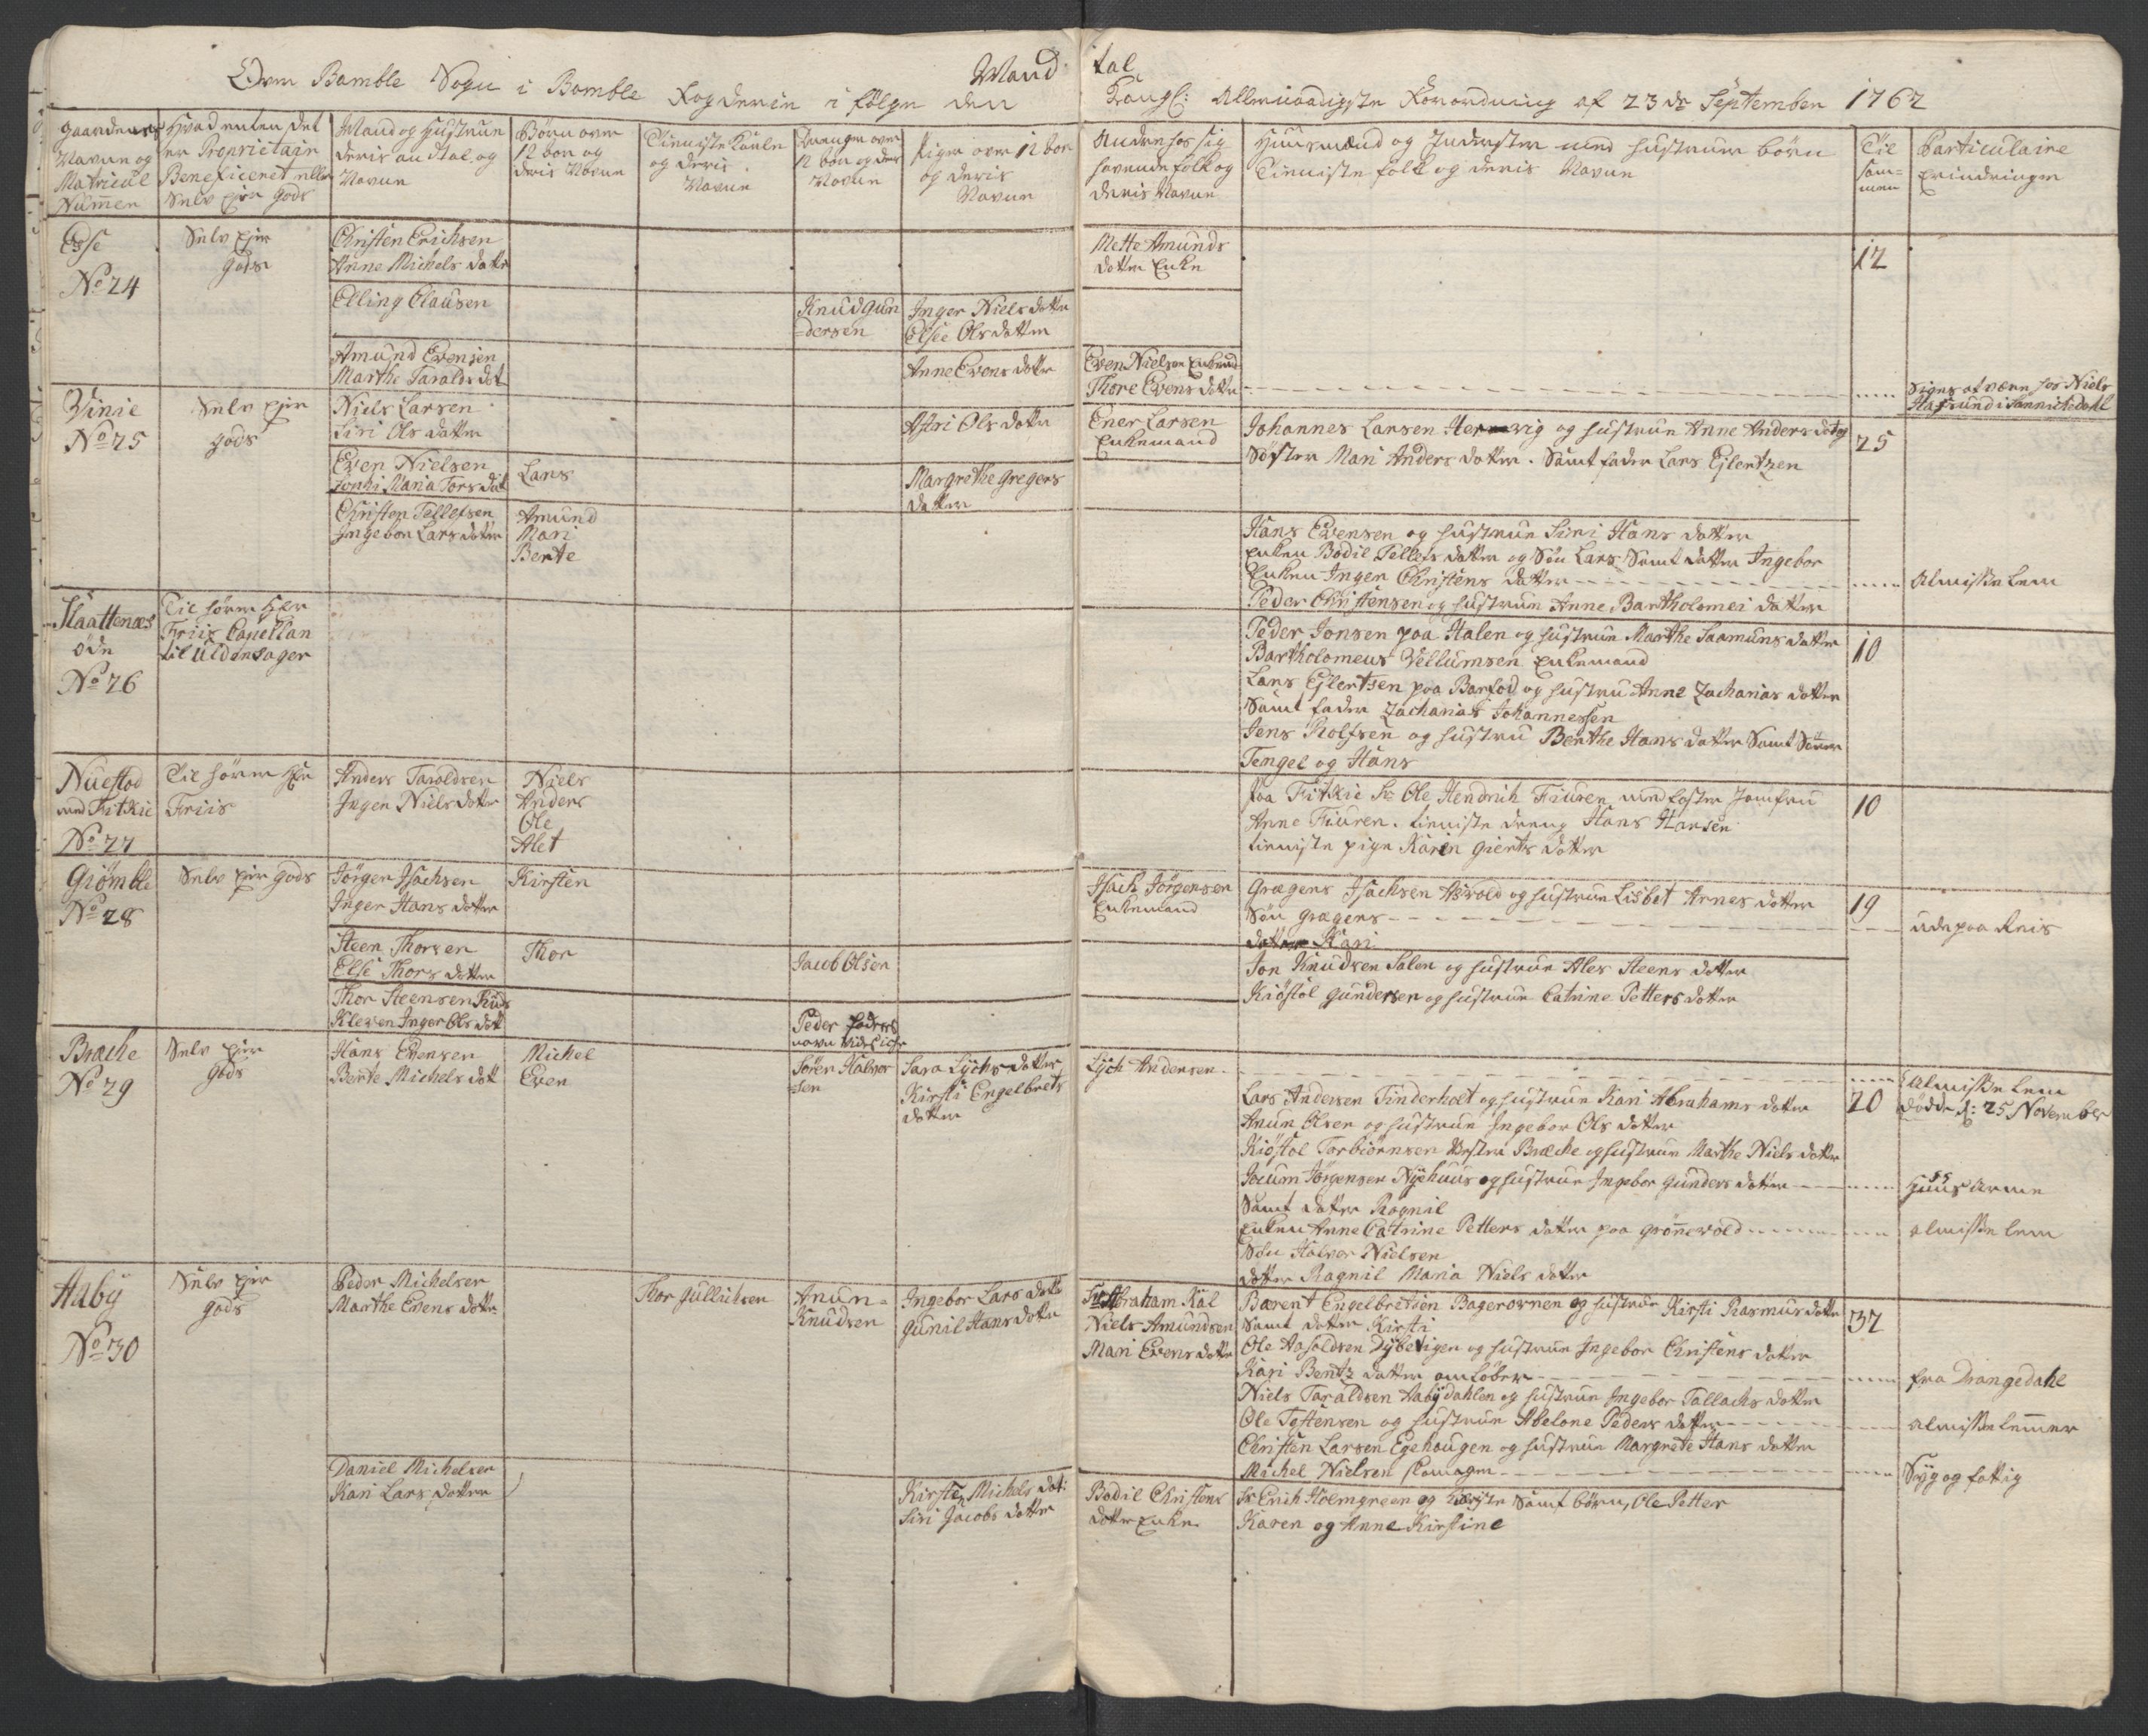 Mand tal
Over Bamble Sogn i Bamble Fogderie i følge den Kongl: Allernaadigste Forordning af 23de September 1762
Gaardenes Navne og Matricul Numer
Hvad enten det er Proprietair Beneficeret eller Selv Ejer Gods
Mand og Hustrue deris an tal og Navne
Børn over 12 Aar og deris Navne
Tieniste Karle og deris Navne
Drenger over 12 Aar og deris Navne
Piger over 12 Aar og deris Navne
Andre hos sig havende folk og deris Navne
Huusmænd og Inderster med hustruer børn
Tieniste folk og deris Navne
Til sam-men
Particulaire Erindringer
No 24
Selv Ejer Gods
Christen Erichsen
Anne Michels datter
Mette Amunds
datter Enke
12
Elling Clausen
Knud Gun
-dersen
Inger Niels datter
Elsie Ols datter
Amund Evensen
Marthe Taralds dat
Anne Evens datter
Even Nielsen Enkemd
Thore Evens datter
Siges at være hos Niels
Vinie
No 25
Selv Ejer
Gods
Niels Larsen
Siri Ols datter
Astri Ols datter
Ener Larsen
Enkemand
Johannes Larsen Herwig og hustrue Anne Anders dat og
Søster Mari Anders datter. Samt fader Lars Ejlertzen
25
Even Nielsen
Maria Tors dat
Lars
Margrethe Gregers
datter
Christen Tellefsen
Ingebor Lars datter
Amund
Mari
Berte
Hans Evensen og hustrue Siri Hans datter
Enken Bodil Tellefs datter og Søn Lars Samt datter Ingebor
Enken Inger Christens datter
Almisse Lem
Peder Christensen og hustrue Anne Bartholomei datter
Slaattenæs
øde
No 26
Til hører Hr
Friis Capellan
til Uldensager
Peder Jonsen paa Halen og hustrue Marthe Saamuns datter
Bartholomeus Vellumsen Enkemand
Lars Ejlertsen paa Barfod og hustru Anne Zacharias datter
Samt fader Zacharias Johannessen
Jens Rolfsen og hustru Berthe Hans datter Samt Sønner
Tengel og Hans
10
Nuestad
med Fitkie
No 27
Til hører Hr
Friis
Anders Taroldsen
Inger Niels datter
Niels
Anders
Ole
Alet
Paa Fitkie Sr Ole Hendrich Fiuren med søster Jomfru
Anne Fiuren. tieniste dreng Hans Hansen
tieniste pige Karen Gierts datter
10
Giømble
No 28
Selv Ejer Gods
Jørgen Isachsen
Inger Hans datter
Kirsten
Isach Jørgensen
Enkemand
Grægers Isachsen Aswold og hustrue Lisbet Arnes datter
Søn Grægers
datter Kari
19
ude paa Reis
Steen Thorsen
Else Thors datter
Thor
Jacob Olsen
Jon Knudsen Salen og hustrue Ales Steens datter
Kiøstol Gundersen og hustrue Catrine Petters datter
Thor Steensen
Kleven Inger Ols dott
Peder faders
navn
Bræche
No 29
Selv Ejer
Gods
Hans Evensen
Berte Michels dot
Michel
Even
Søren Halvor
sen
Sara Lychs datter
Kirsti Engelbrets
datter
Lych Andersen
Almisse Lem
døde d: 25 November
Lars Andersen Tinderholt og hustrue Kari Abrahams datter
20
Anun Olsen og hustrue Ingebor Ols datter
Kiøstol Torbiørnsen Vestre Bræche og hustrue Marthe Niels datter
Jocum Jørgensen Nyehuus og hustrue Ingebor Gunders datter
Huus Arme
Samt datter Ragnil
Enken Anne Catrine Petters datter paa Grønewold
Almisse Lem
Søn Halvor Nielsen
datter Ragnil Maria Niels datter
Aaby
No 30
Selv Ejer
Gods
Peder Michelsen
Marthe Evens datter
Thor Gullichsen
Anun
Knudsen
Ingebor Lars datter
Gunil Hans datter
Sr Abraham Kal
Niels Amundsen
Mari Evens datter
Barent Engelbretsen Bagerovnen og hustrue Kirsti Rasmus datter
Samt datter Kirsti
37
Ole Aasoldsen Dybevigen og hustrue Ingebor Christens datter
Kari Bentz datter omløber
fra Drangedahl
Niels Taraldsen Aabydahlen og hustrue Ingebor Tallachs datter
Ole Tostensen og hustrue Abelone Peders datter
Almisse Lemmer
Christen Larsen Egehaugen og hustrue Margrete Hans datter
Michel Nielsen skomager
Syg og fattig
Daniel Michelsen
Kari Lars datter
Kirsten Michels dat:
Siri Jacobs datter
Bodil Christens
datter Enke
Sr Erich Holmgreen og kiæriste Samt børn, Ole Petter
Karen og Anne Kirstine